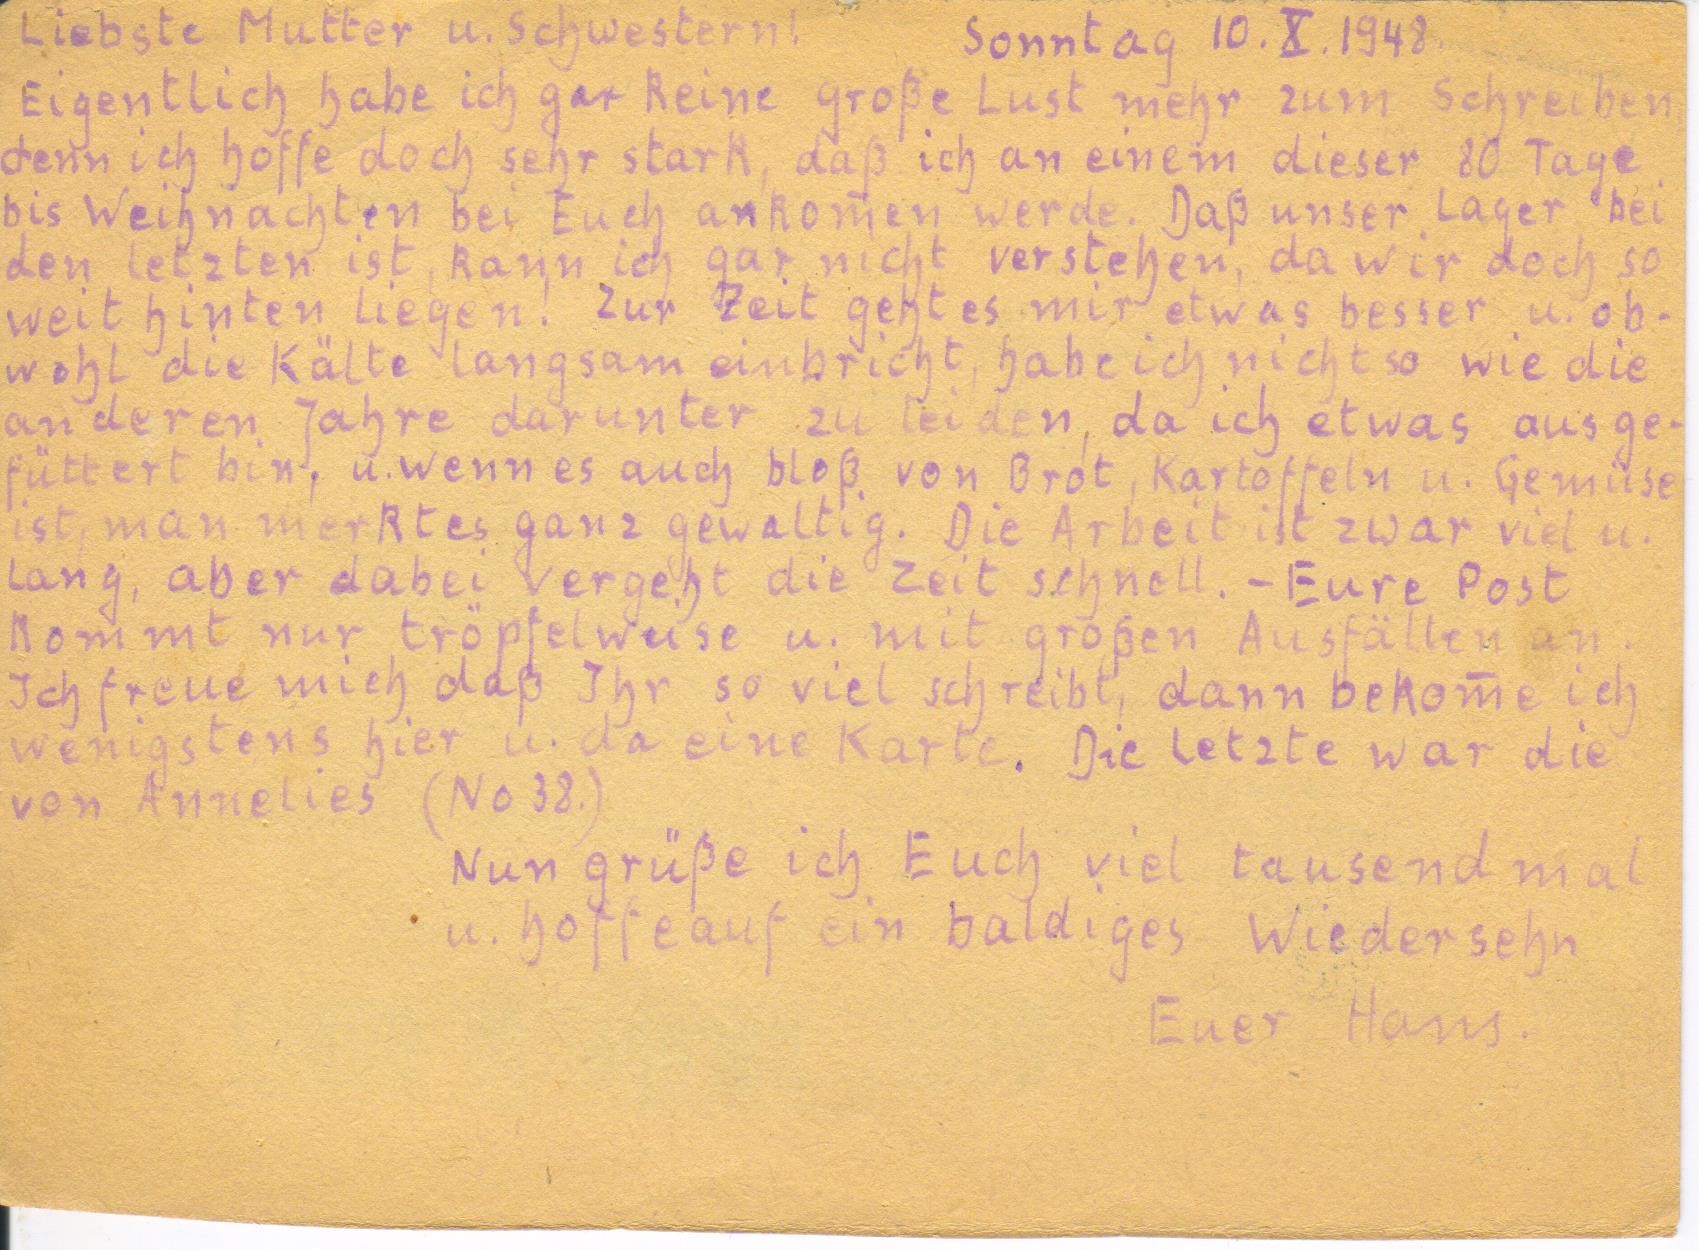 Liebste Mutter u. Schwestern! Sonntag 10. X. 1948.
Eigentlich habe ich gar keine große Lust mehr zum Schreiben,
denn ich hoffe doch sehr stark, daß ich an einem dieser 80 Tage
bis Weihnachten bei Euch ankom̅en werde. Daß unser Lager bei
den letzten ist, kann ich gar nicht verstehen, da wir doch so
weit hinten liegen! Zur Zeit geht es mir etwas besser u. ob-
wohl die Kälte langsam einbricht, habe ich nicht so wie die
anderen Jahre darunter zu leiden, da ich etwas ausge-
füttert bin, u. wenn es auch bloß von Brot, Kartoffeln u. Gemüse
ist, man merkt es ganz gewaltig. Die Arbeit ist zwar viel u.
lang, aber dabei vergeht die Zeit schnell. – Eure Post
kommt nur tröpfelweise u. mit großen Ausfällen an.
Ich freue mich daß Ihr so viel schreibt, dann bekom̅e ich
wenigstens hier u. da eine Karte. Die letzte war die
von Annelies (No 38.)
Nun grüße ich Euch viel tausendmal
u. hoffe auf ein baldiges Wiedersehn
Euer Hans.